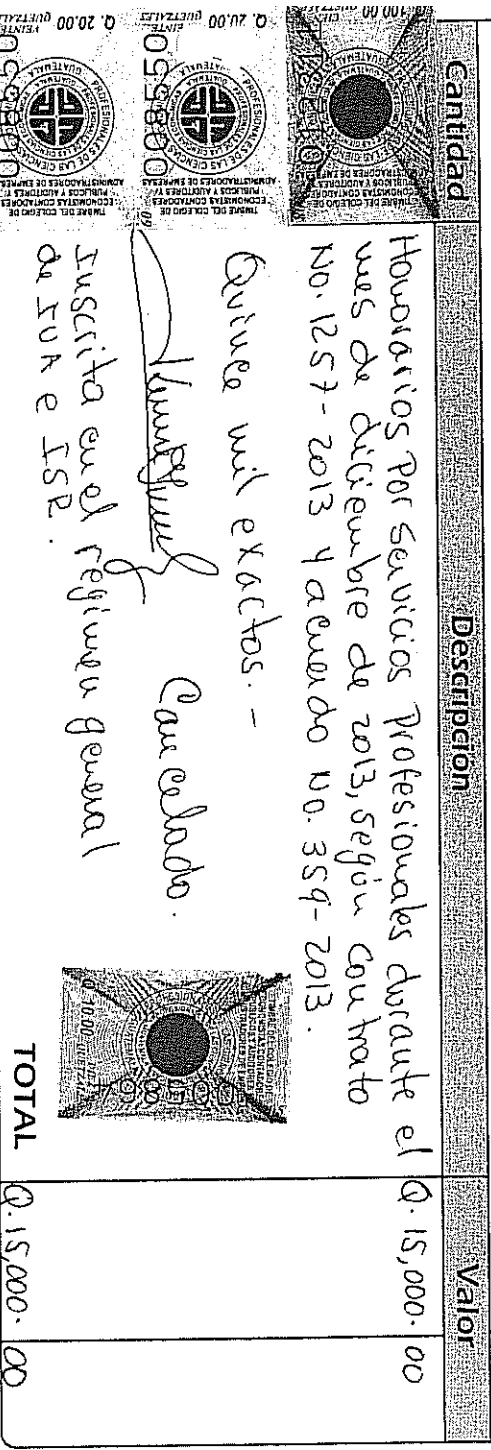 Cantidad Descripción Valor
Honorarios Por Servicios Profesionales durante el Q. 15,000.00
mes de diciembre de 2013, según contrato
No. 1257-2013 y acuerdo No. 359-2013.
Quince mil exactos.-
Cancelado.
Inscrita en el régimen general
de IVA e ISR.
TOTAL Q. 15,000.00
Q. 100.00
TIMBRE DEL COLEGIO DE
ECONOMISTAS, CONTADORES
PÚBLICOS Y AUDITORES Y
ADMINISTRADORES DE EMPRESAS
PROFESIONALES DE LAS CIENCIAS
GUATEMALA
008550
Q. 20.00
VEINTE
QUETZALES
TIMBRE DEL COLEGIO DE
ECONOMISTAS, CONTADORES
PÚBLICOS Y AUDITORES Y
ADMINISTRADORES DE EMPRESAS
PROFESIONALES DE LAS CIENCIAS
GUATEMALA
Q. 20.00
VEINTE
QUETZALES